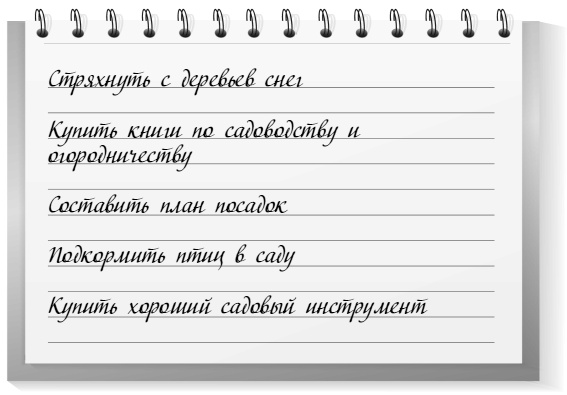 Стряхнуть с деревьев снег
Купить книги по садоводству и
огородничеству
Составить план посадок
Подкормить птиц в саду
Купить хороший садовый инструмент